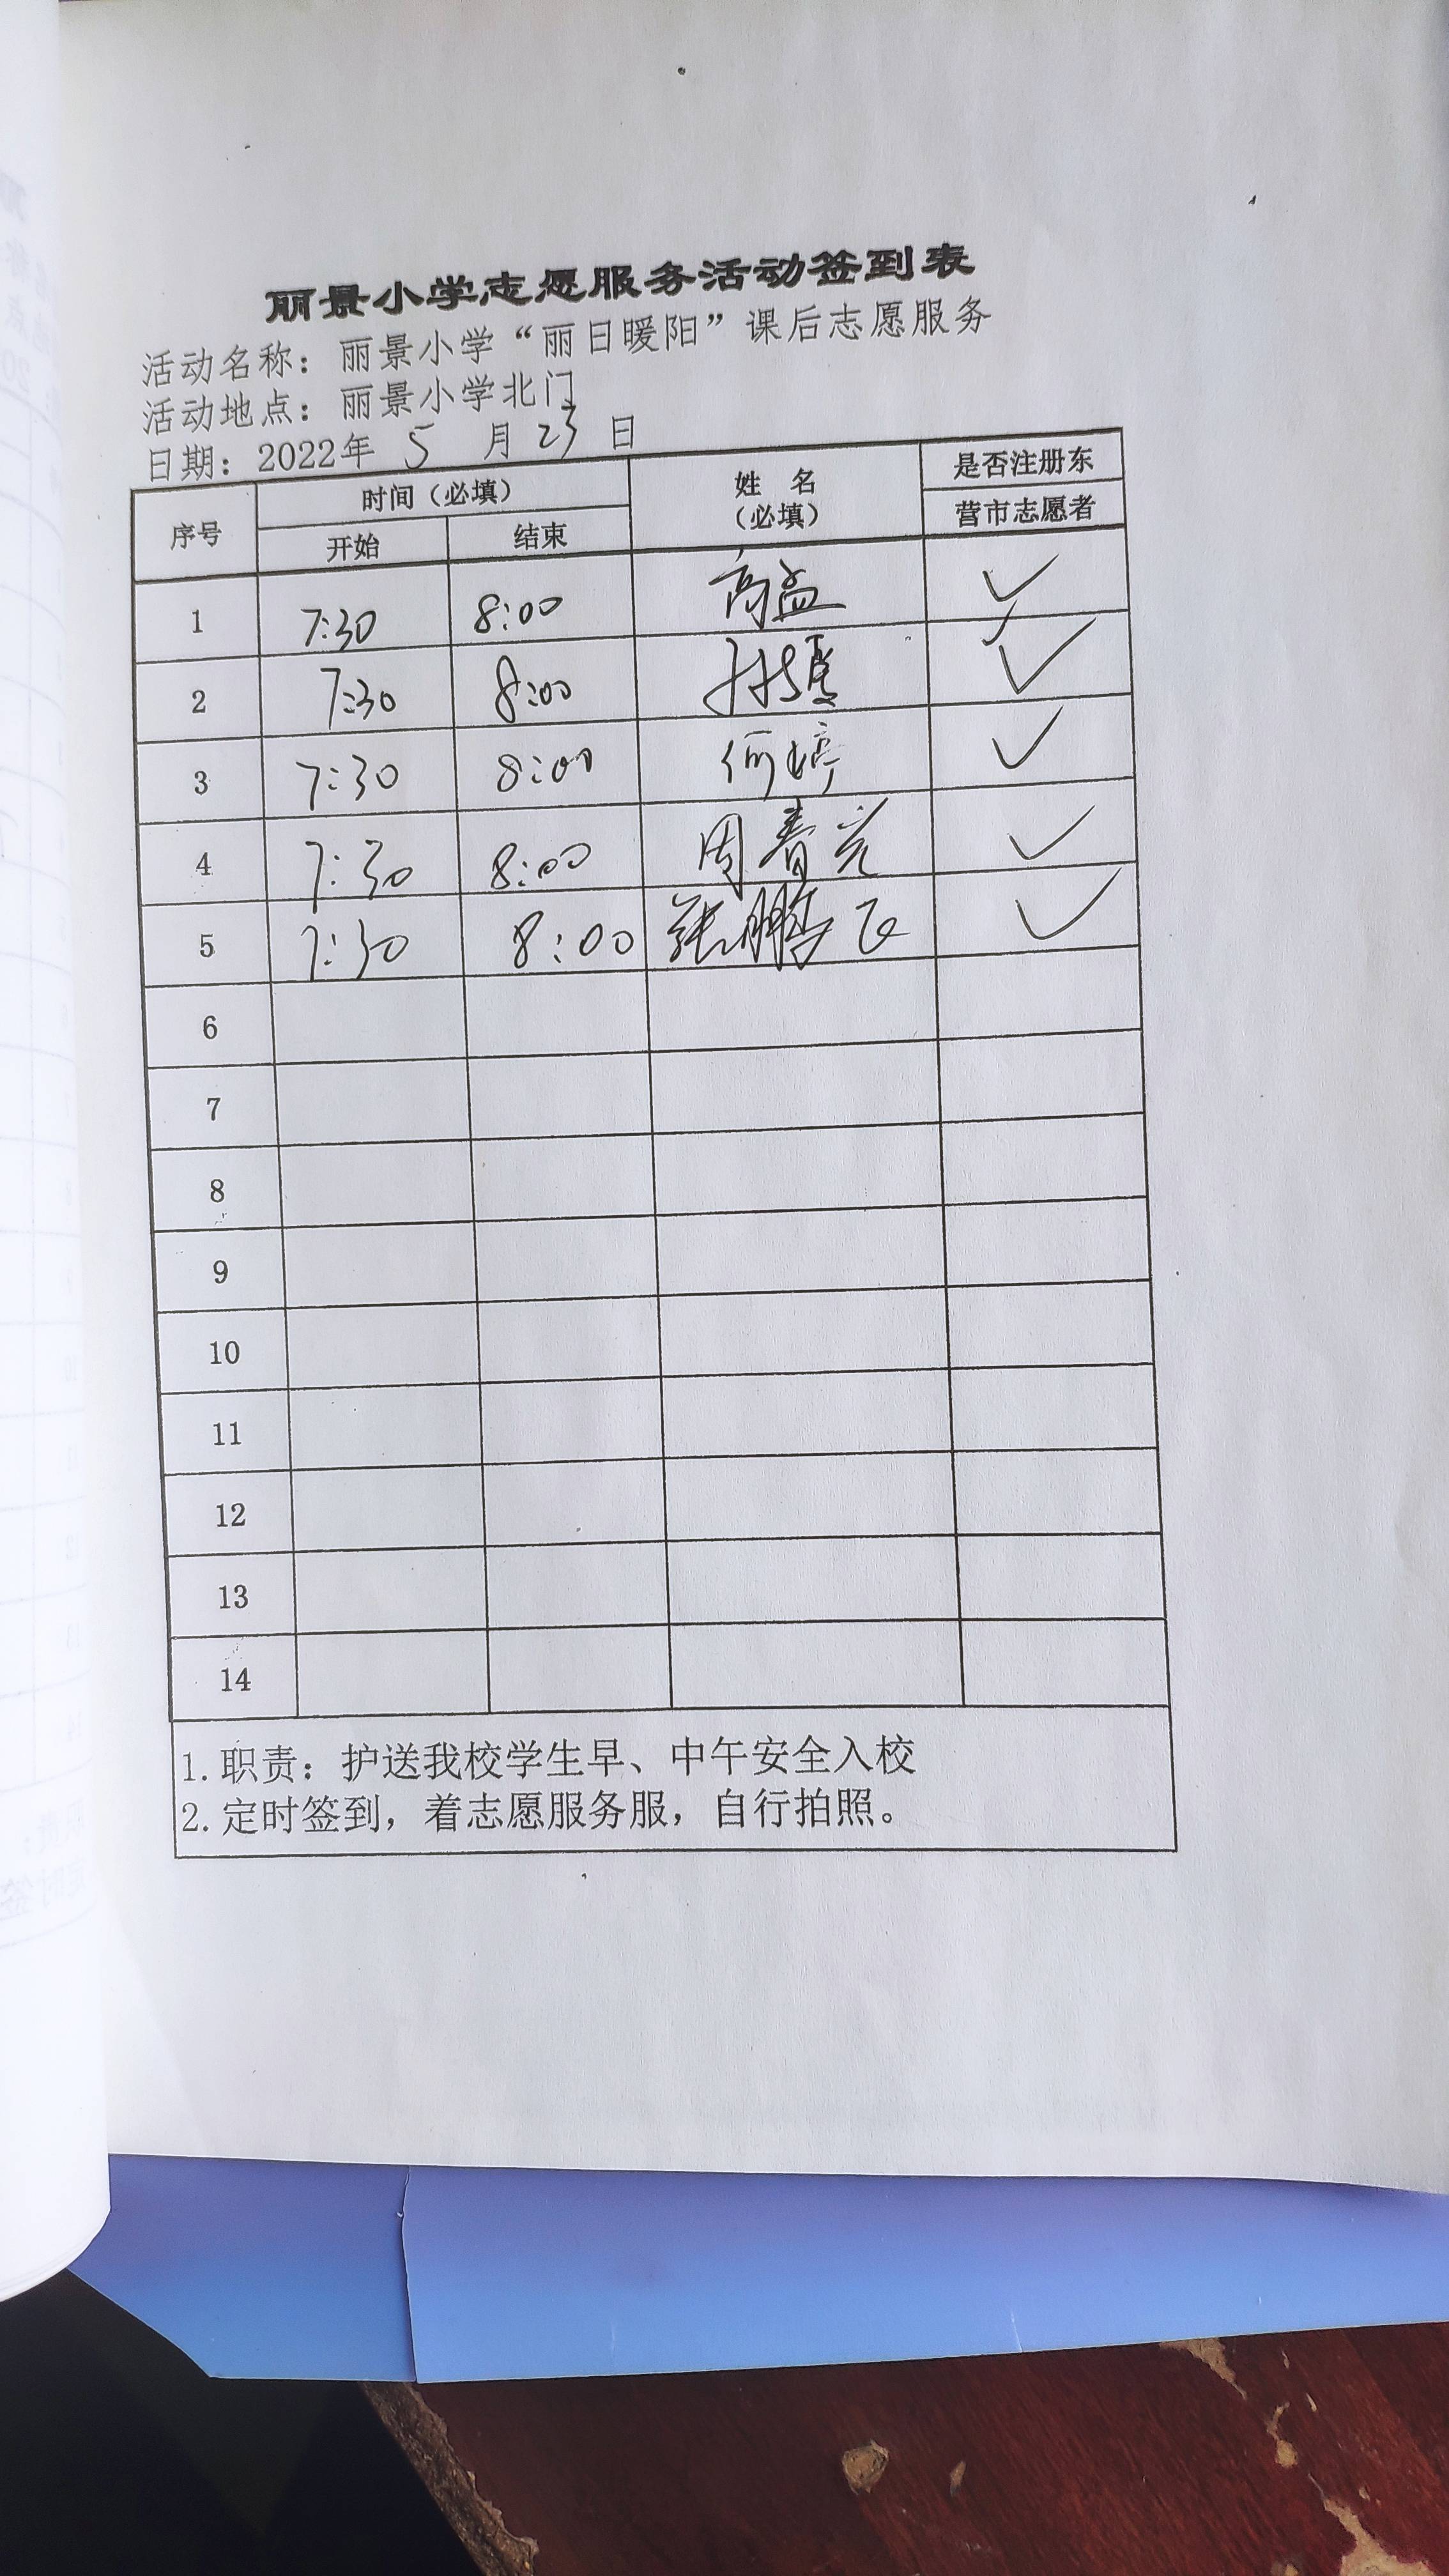 丽景小学志愿服务活动签到表
活动名称：丽景小学“丽日暖阳”课后志愿服务
活动地点：丽景小学北门
日期：2022年 5 月 23 日
序号 时间（必填） 姓 名（必填） 是否注册东营市志愿者
开始 结束
1 7:30 8:00 高孟 ✓
2 7:30 8:00 ✓
3 7:30 8:00 何婷 ✓
4 7:30 8:00 周春亮 ✓
5 7:30 8:00 张鹏飞 ✓
6
7
8
9
10
11
12
13
14
1.职责：护送我校学生早、中午安全入校
2.定时签到，着志愿服务服，自行拍照。